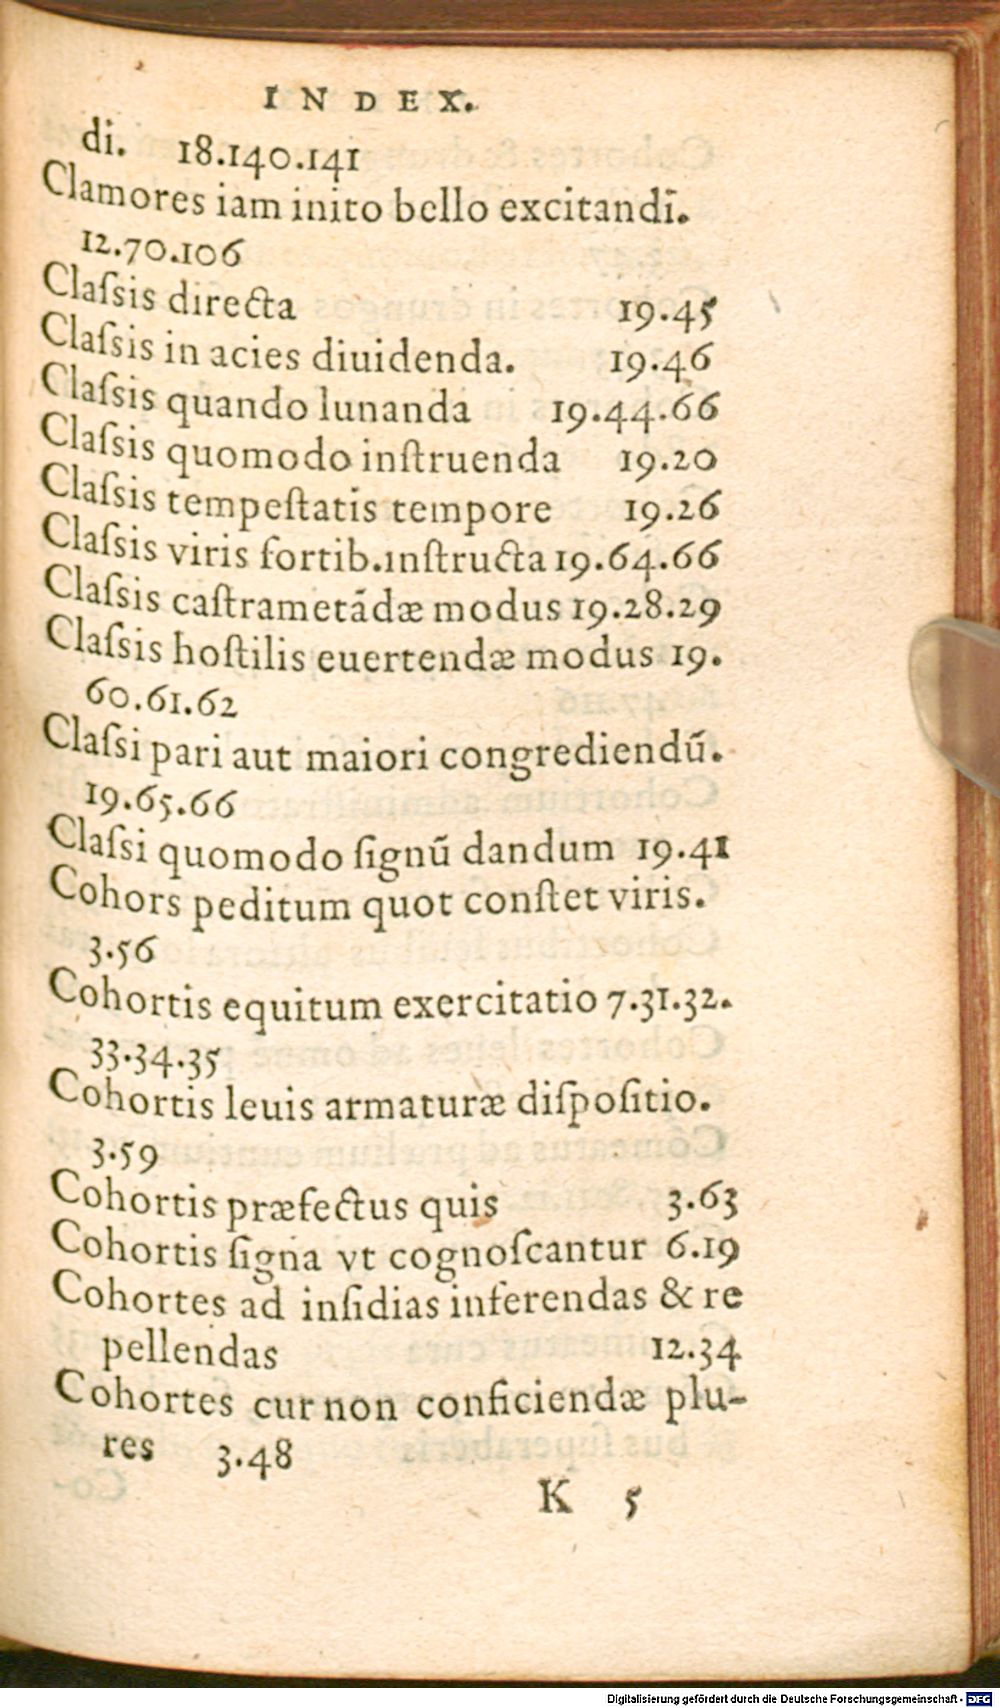 INDEX.
di. 18.140.141
Clamores iam inito bello excitandī.
12.70.106
Claſsis directa 19.45
Claſsis in acies diuidenda. 19.46
Claſsis quando lunanda 19.44.66
Claſsis quomodo inſtruenda 19.20
Claſsis tempeſtatis tempore 19.26
Claſsis viris fortib.inſtructa 19.64.66
Claſsis caſtrametādæ modus 19.28.29
Claſsis hoſtilis euertendæ modus 19.
60.61.62
Claſsi pari aut maiori congrediendū.
19.65.66
Claſsi quomodo ſignū dandum 19.41
Cohors peditum quot conſtet viris.
3.56
Cohortis equitum exercitatio 7.31.32.
33.34.35
Cohortis leuis armaturæ diſpoſitio.
3.59
Cohortis præfectus quis 3.63
Cohortis ſigna vt cognoſcantur 6.19
Cohortes ad inſidias inferendas & re
pellendas 12.34
Cohortes cur non conficiendæ plu-
res 3.48
K 5
Digitalisierung gefördert durch die Deutsche Forschungsgemeinschaft - DFG